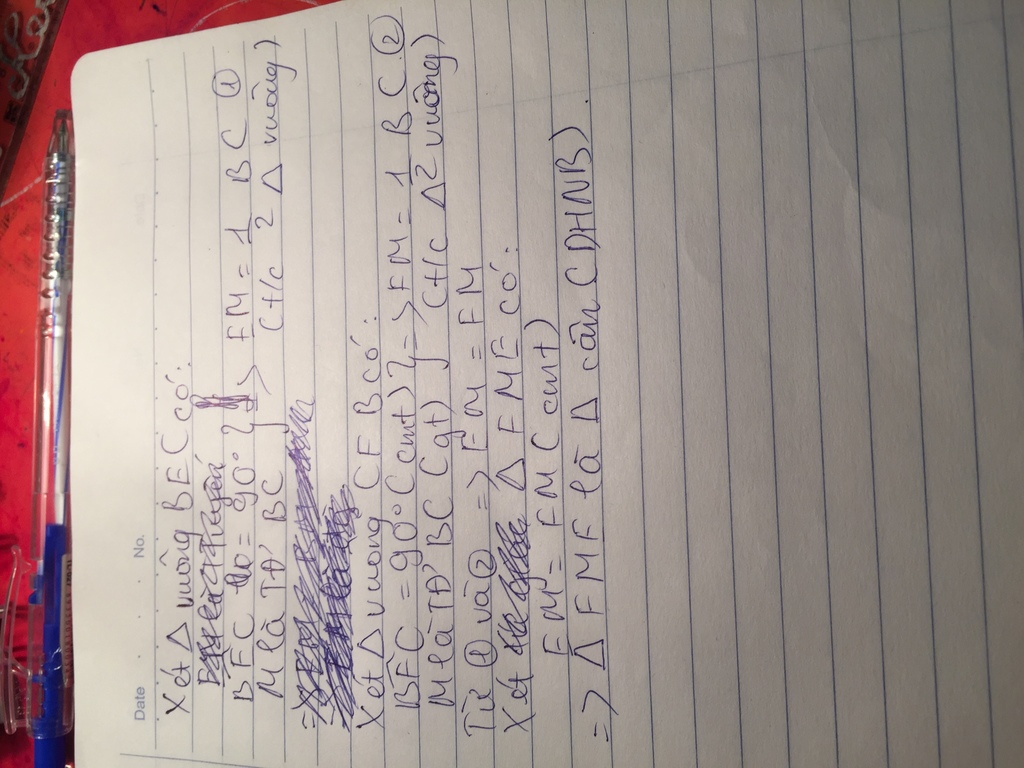 Date No.
Xét Δ vuông BEC có:
BEC = 90° } => EM = 1/2 BC ①
M là TĐ' BC (t/c Δ vuông)
Xét Δ vuong CFB có:
BFC = 90° (cmt) } => FM = 1/2 BC ②
M là TĐ' BC (gt) (t/c Δ vuông)
Từ ① và ② => EM = FM
Xét Δ FME có:
EM = FM (cmt)
=> Δ FME là Δ cân (DHNB)